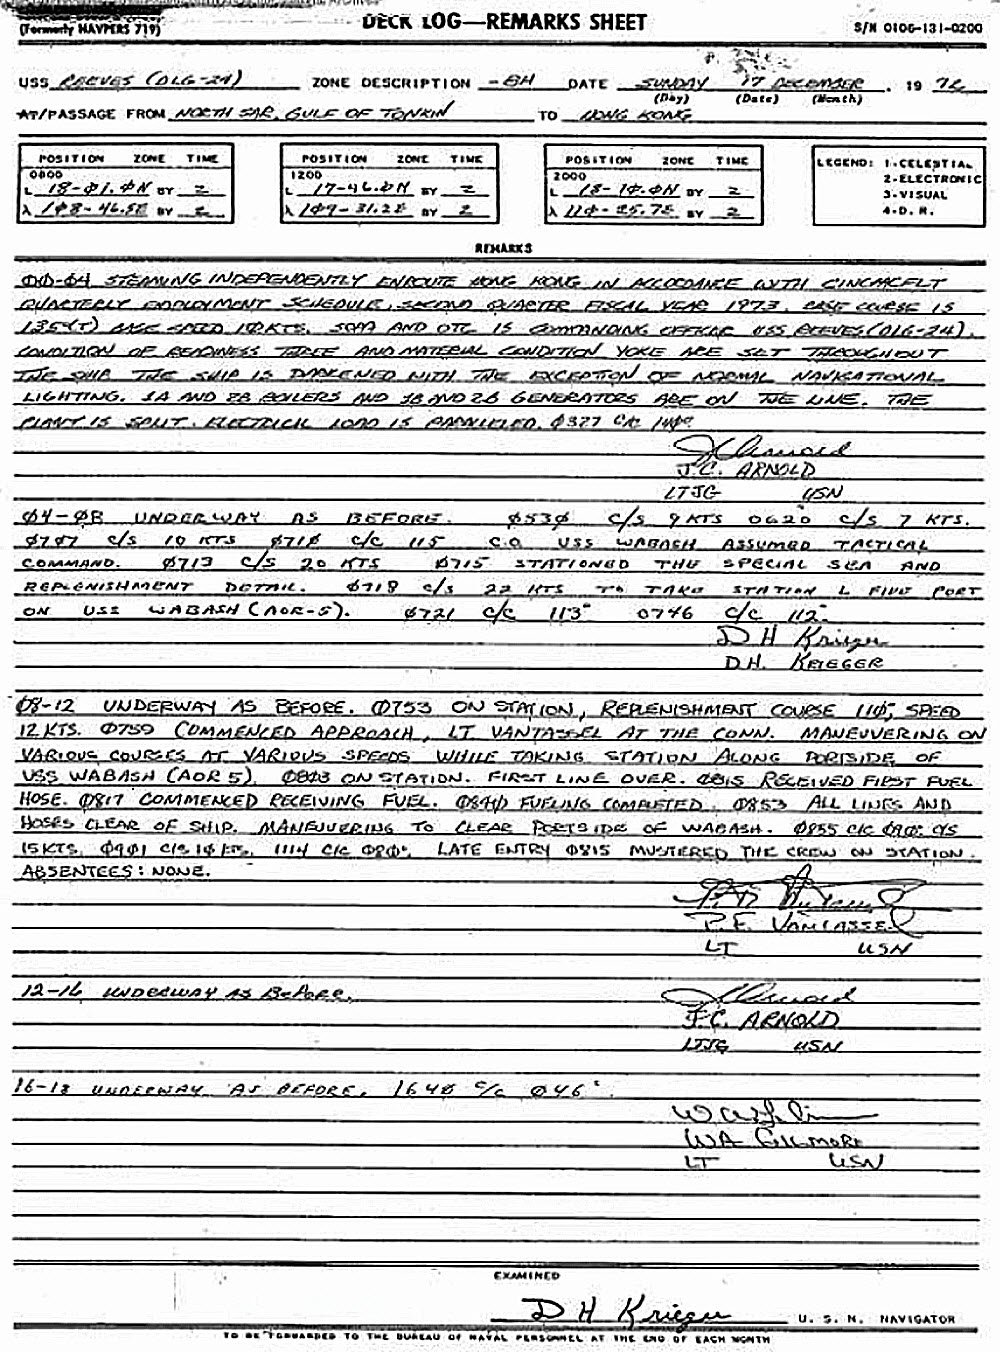 (Formerly NAVPERS 719)
DECK LOG—REMARKS SHEET
S/N 0106-131-0200
USS REEVES (DLG-24) ZONE DESCRIPTION -8H DATE SUNDAY 17 DECEMBER, 19 72
(Day) (Date) (Month)
AT/PASSAGE FROM NORTH SAR, GULF OF TONKIN TO HONG KONG
POSITION ZONE TIME
0800
L 18-01.0N BY 2
λ 108-46.5E BY 2
POSITION ZONE TIME
1200
L 17-46.0N BY 2
λ 109-31.2E BY 2
POSITION ZONE TIME
2000
L 18-10.0N BY 2
λ 110-25.7E BY 2
LEGEND: 1-CELESTIAL
2-ELECTRONIC
3-VISUAL
4-D. R.
REMARKS
00-04 STEAMING INDEPENDENTLY ENROUTE HONG KONG IN ACCORDANCE WITH CINCPACFLT
QUARTERLY EMPLOYMENT SCHEDULE, SECOND QUARTER FISCAL YEAR 1973. BASE COURSE IS
135°(T) BASE SPEED 10 KTS. SOPA AND OTC IS COMMANDING OFFICER USS REEVES (DLG-24).
CONDITION OF READINESS THREE AND MATERIAL CONDITION YOKE ARE SET THROUGHOUT
THE SHIP THE SHIP IS DARKENED WITH THE EXCEPTION OF NORMAL NAVIGATIONAL
LIGHTING. 1A AND 2B BOILERS AND 1B AND 2B GENERATORS ARE ON THE LINE. THE
PLANT IS SPLIT. ELECTRICAL LOAD IS PARALLELED. 0327 C/C 140°
J C Arnold
J.C. ARNOLD
LTJG USN
04-08 UNDERWAY AS BEFORE. 0530 C/S 9 KTS 0620 C/S 7 KTS.
0707 C/S 10 KTS 0710 C/C 115° C.O. USS WABASH ASSUMED TACTICAL
COMMAND. 0713 C/S 20 KTS 0715 STATIONED THE SPECIAL SEA AND
REPLENISHMENT DETAIL. 0718 C/S 22 KTS TO TAKE STATION L FIVE PORT
ON USS WABASH (AOR-5). 0721 C/C 113° 0746 C/C 112°
D H Krieger
D.H. KRIEGER
08-12 UNDERWAY AS BEFORE. 0753 ON STATION, REPLENISHMENT COURSE 110°, SPEED
12 KTS. 0759 COMMENCED APPROACH, LT VANTASSEL AT THE CONN. MANEUVERING ON
VARIOUS COURSES AT VARIOUS SPEEDS WHILE TAKING STATION ALONG PORTSIDE OF
USS WABASH (AOR 5). 0803 ON STATION. FIRST LINE OVER. 0815 RECEIVED FIRST FUEL
HOSE. 0817 COMMENCED RECEIVING FUEL. 0840 FUELING COMPLETED. 0853 ALL LINES AND
HOSES CLEAR OF SHIP. MANEUVERING TO CLEAR PORTSIDE OF WABASH. 0855 C/C 090° C/S
15 KTS. 0901 C/S 10 KTS. 1114 C/C 080°. LATE ENTRY 0815 MUSTERED THE CREW ON STATION.
ABSENTEES: NONE.
P.E. VANTASSEL
LT USN
12-16 UNDERWAY AS BEFORE.
J C Arnold
J.C. ARNOLD
LTJG USN
16-18 UNDERWAY AS BEFORE. 1640 C/C 046°.
WA GILMORE
LT USN
EXAMINED
D H Krieger U. S. N. NAVIGATOR
TO BE FORWARDED TO THE BUREAU OF NAVAL PERSONNEL AT THE END OF EACH MONTH